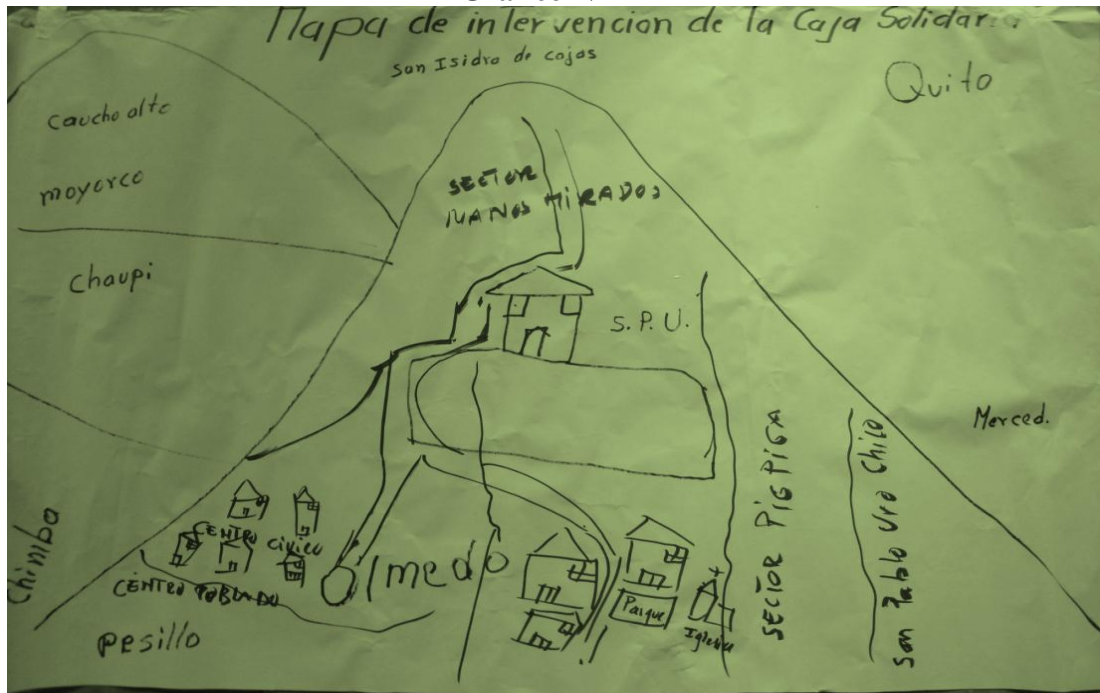 Mapa de intervencion de la Caja Solidaria
San Isidro de cajas
Quito
caucho alto
moyorco
SECTOR
MANOS MIRADOS
Chaupi
S. P. U.
Merced.
SECTOR PIGPIGA
San Pablo Uro Chico
Chimba
CENTRO CIVICO
CENTRO POBLADO
Olmedo
Parque
Iglesia
Pesillo